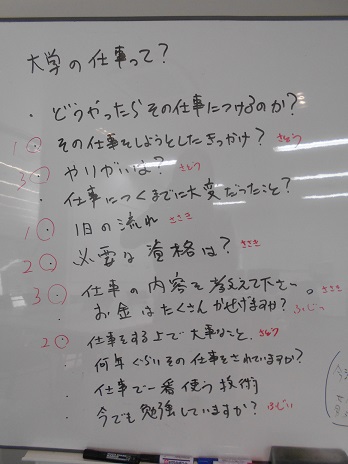 大学の仕事って?
・どうやったらその仕事につけるのか?
1 ・その仕事をしようとしたきっかけ? さとう
3 ・やりがいは? さとう
・仕事につくまでに大変だったこと?
1 ・1日の流れ ささき
2 ・必要な資格は? ささき
3 ・仕事の内容を考えて下さい。 ささき
お金はたくさんかせげますか? ふじい
2 ・仕事をする上で大事なこと。 さとう
・何年ぐらいその仕事をされていますか?
・仕事で一番使う技術
・今でも勉強していますか? ふじい